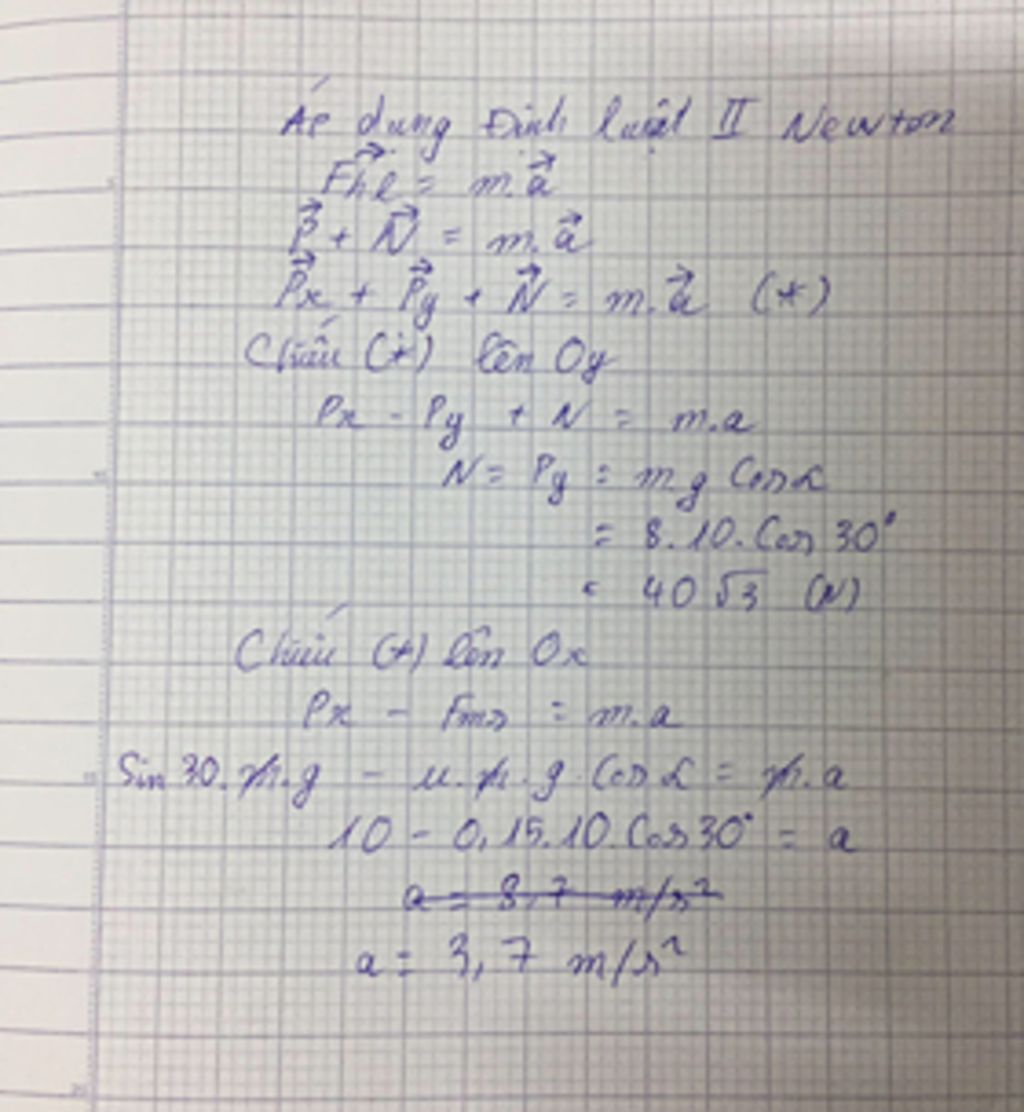 Áp dụng Định luật II Newton
F⃗hl = m.a⃗
P⃗ + N⃗ = m.a⃗
P⃗x + P⃗y + N⃗ = m.a⃗ (*)
Chiếu (*) lên Oy
Px - Py + N = m.a
N = Py = mg Cosα
= 8.10.Cos 30°
= 40√3 (N)
Chiếu (*) lên Ox
Px - Fms = m.a
Sin 30.m.g - μ.m.g.Cosα = m.a
10 - 0,15.10.Cos30° = a
a = 8,7 m/s²
a = 3,7 m/s²